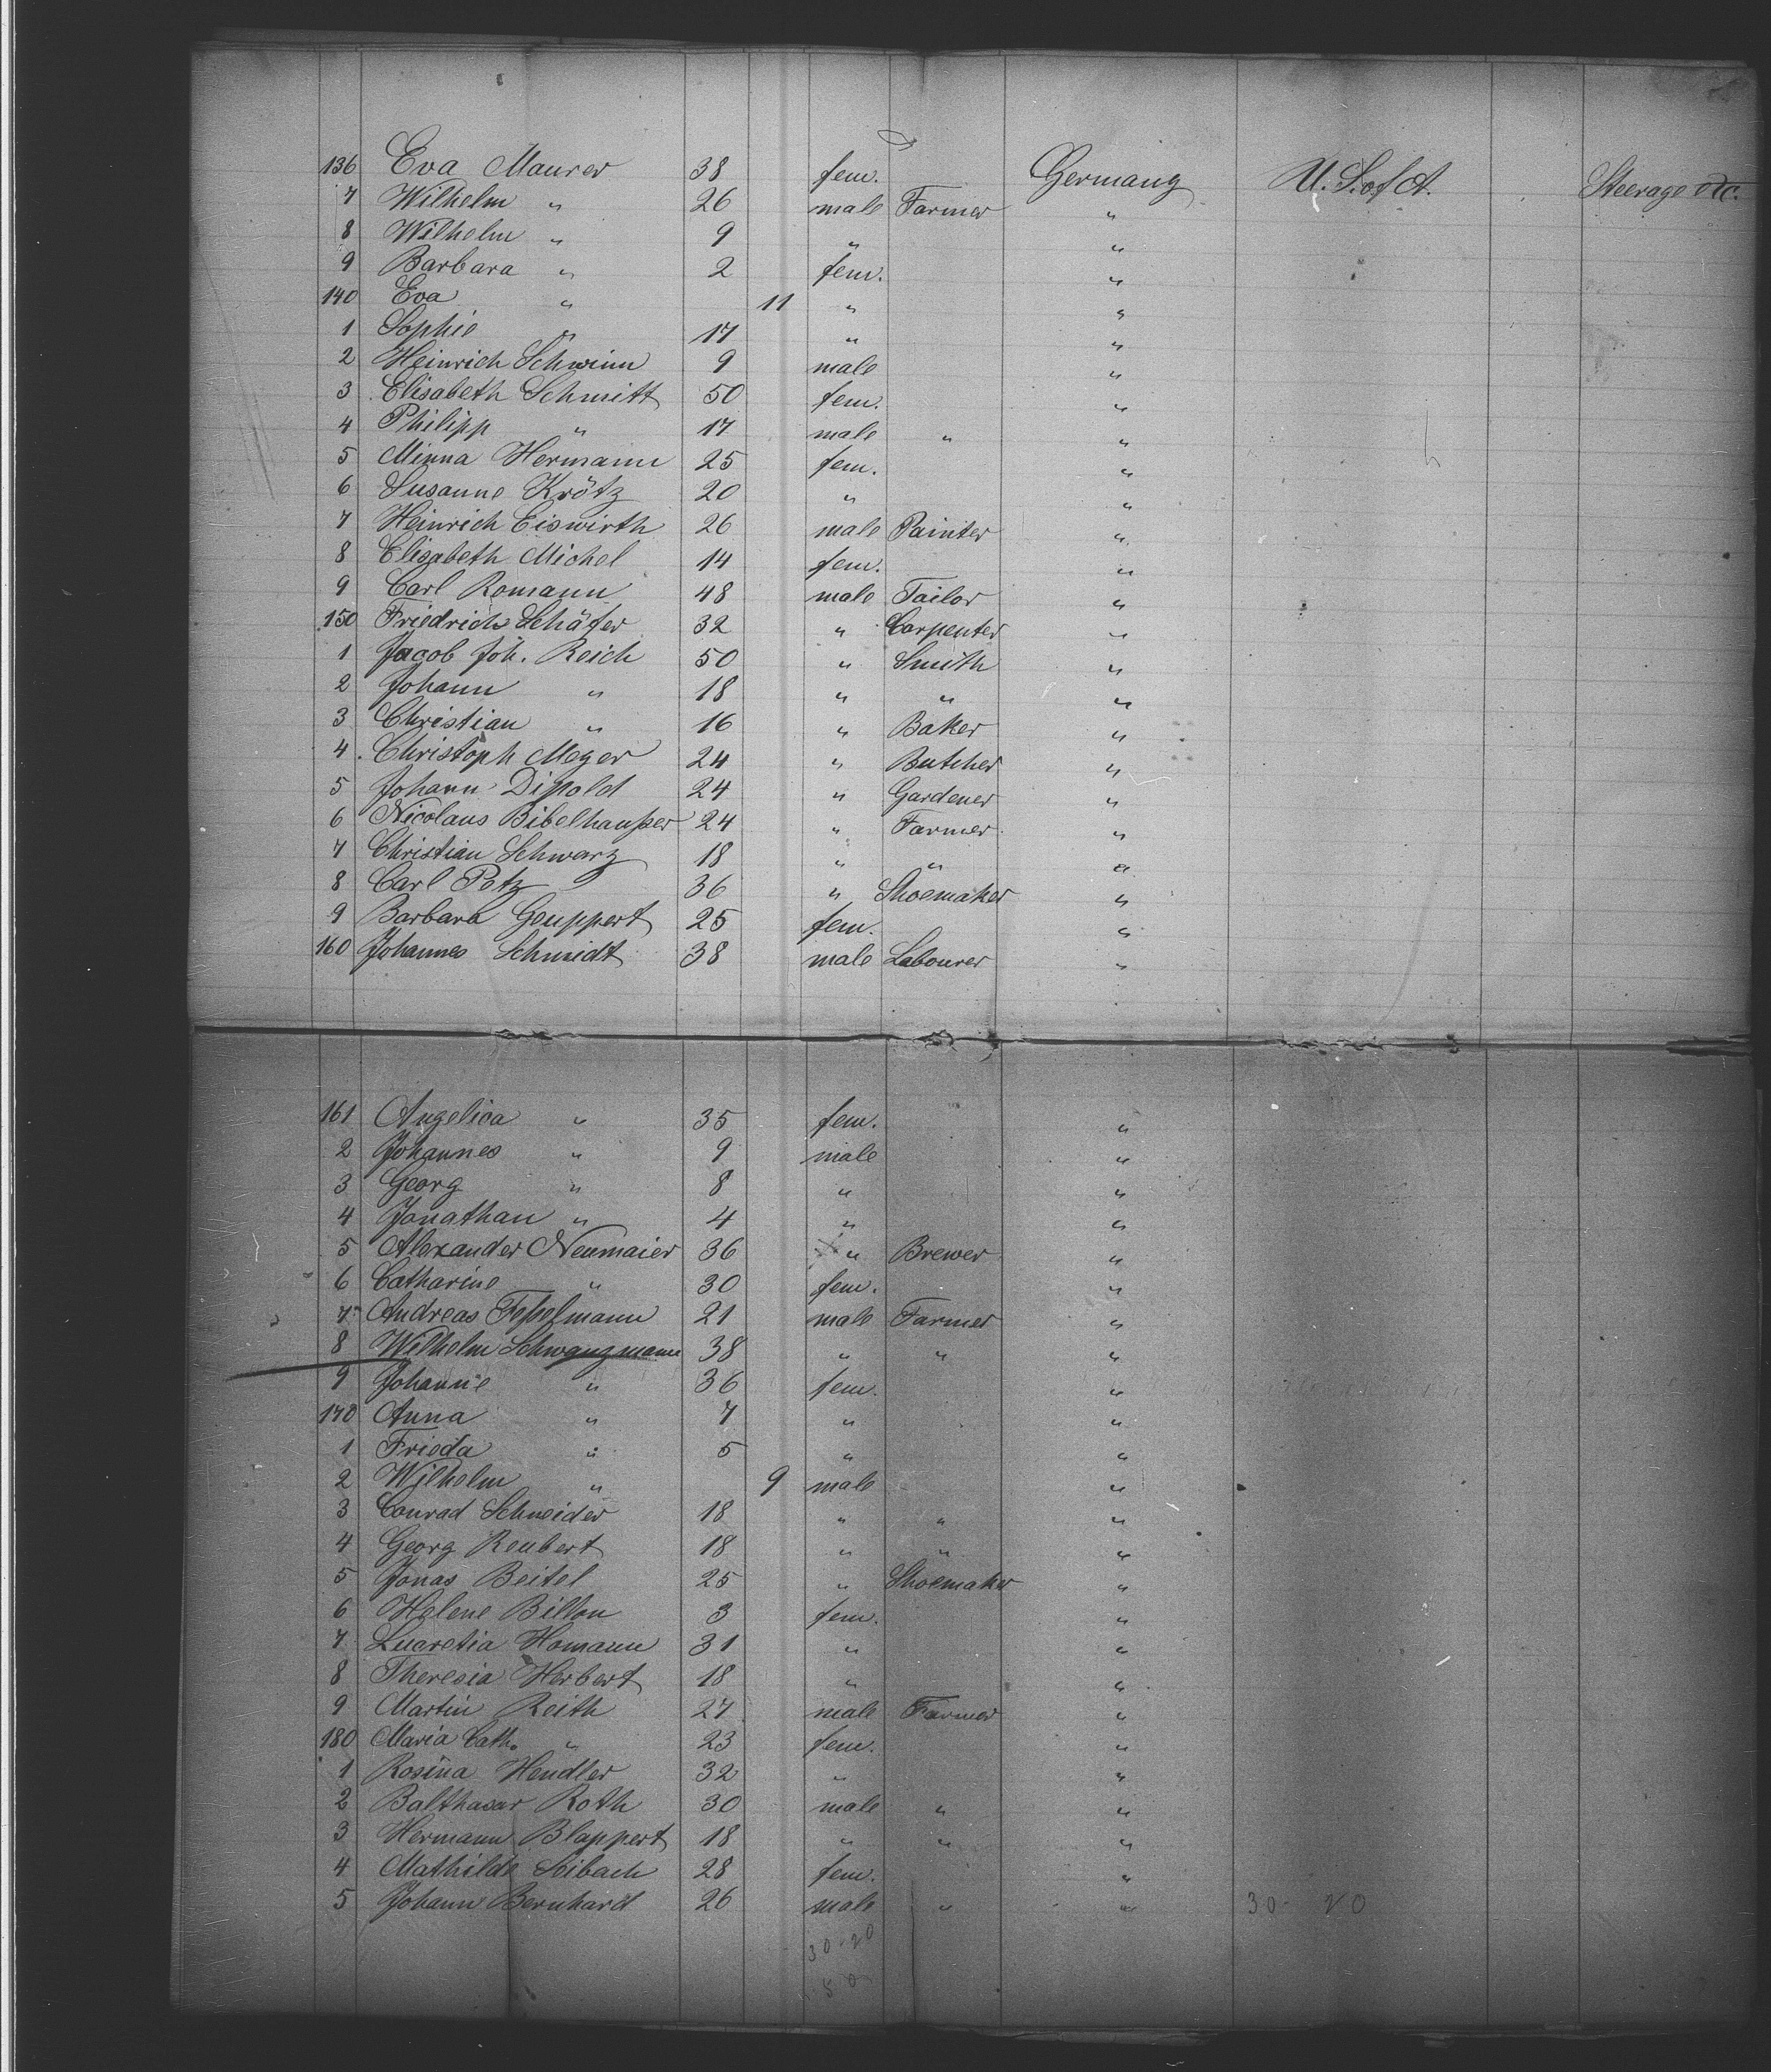 136 Eva Maurer 38 fem. Germany U. S. of A. Steerage etc.
7 Wilhelm " 26 male Farmer "
8 Wilhelm " 9 " "
9 Barbara " 2 fem. "
140 Eva " 11 " "
1 Sophie " 17 " "
2 Heinrich Schwinn 9 male "
3 Elisabeth Schmitt 50 fem. "
4 Philipp " 17 male " "
5 Minna Hermann 25 fem. "
6 Susanne Krötz 20 " "
7 Heinrich Eiswirth 26 male Painter "
8 Elisabeth Michel 14 fem. "
9 Carl Romann 48 male Tailor "
150 Friedrich Schäfer 32 " Carpenter "
1 Jacob Joh. Reich 50 " Smith "
2 Johann " 18 " " "
3 Christian " 16 " Baker "
4 Christoph Meyer 24 " Butcher "
5 Johann Dipold 24 " Gardener "
6 Nicolaus Bibelhaußer 24 " Farmer "
7 Christian Schwarz 18 " " "
8 Carl Petz 36 " Shoemaker "
9 Barbara Geuppert 25 fem. "
160 Johannes Schmidt 38 male Labourer "
161 Angelica " 35 fem. "
2 Johannes " 9 male "
3 Georg " 8 " "
4 Jonathan " 4 " "
5 Alexander Neumaier 36 " Brewer "
6 Catharine " 30 fem. "
7 Andreas Feßelmann 21 male Farmer "
8 Wilhelm Schwanzmann 38 " " "
9 Johanne " 36 fem. "
170 Anna " 7 " "
1 Frieda " 5 " "
2 Wilhelm " 9 male "
3 Conrad Schneider 18 " " "
4 Georg Reubert 18 " " "
5 Jonas Beitel 25 " Shoemaker "
6 Helene Billon 3 fem. "
7 Lucretia Homann 31 " "
8 Theresia Herbert 18 " "
9 Martin Reith 27 male Farmer "
180 Maria Cath. " 23 fem. "
1 Rosina Hendler 32 " "
2 Balthasar Roth 30 male " "
3 Hermann Blappert 18 " " "
4 Mathilde Soibach 28 fem. "
5 Johann Bernhard 26 male " " 30 - 20
30 - 20
50